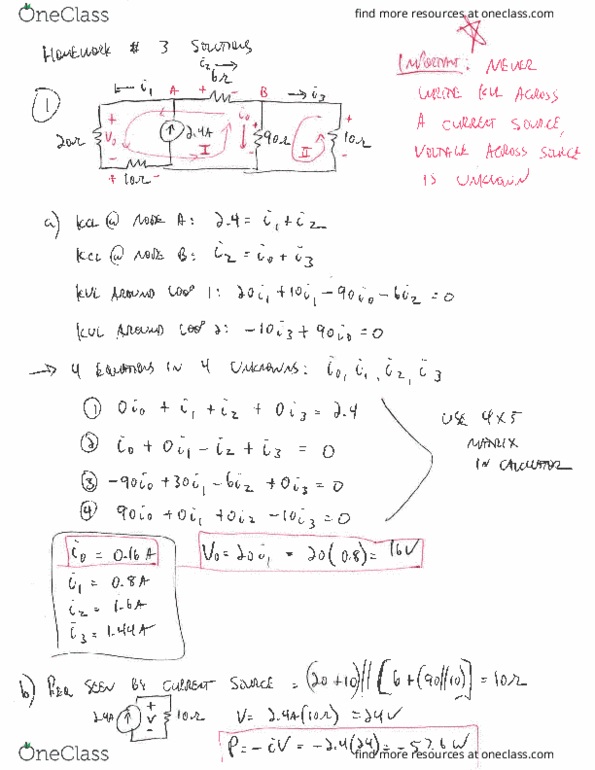 OneClass
find more resources at oneclass.com
HOMEWORK # 3 SOLUTIONS
IMPORTANT: NEVER
WRITE KVL ACROSS
A CURRENT SOURCE,
VOLTAGE ACROSS SOURCE
IS UNKNOWN
1
← i₁ A + 6Ω - B → i₃
i₂ →
20Ω + V₀ - 2.4A I i₀ + 90Ω - II + 10Ω -
+ 10Ω -
a) KCL @ NODE A: 2.4 = i₁ + i₂
KCL @ NODE B: i₂ = i₀ + i₃
KVL AROUND LOOP 1: 20i₁ + 10i₁ - 90i₀ - 6i₂ = 0
KVL AROUND LOOP 2: -10i₃ + 90i₀ = 0
→ 4 EQUATIONS IN 4 UNKNOWNS: i₀, i₁, i₂, i₃
① 0i₀ + i₁ + i₂ + 0i₃ = 2.4
② i₀ + 0i₁ - i₂ + i₃ = 0
③ -90i₀ + 30i₁ - 6i₂ + 0i₃ = 0
④ 90i₀ + 0i₁ + 0i₂ - 10i₃ = 0
USE 4X5
MATRIX
IN CALCULATOR
i₀ = 0.16A
i₁ = 0.8A
i₂ = 1.6A
i₃ = 1.44A
V₀ = 20i₁ = 20(0.8) = 16V
b) REQ SEEN BY CURRENT SOURCE = (20+10)||[6+(90||10)] = 10Ω
2.4A + V - 10Ω V = 2.4A(10Ω) = 24V
P = -iV = -2.4(24) = -57.6W
OneClass
find more resources at oneclass.com